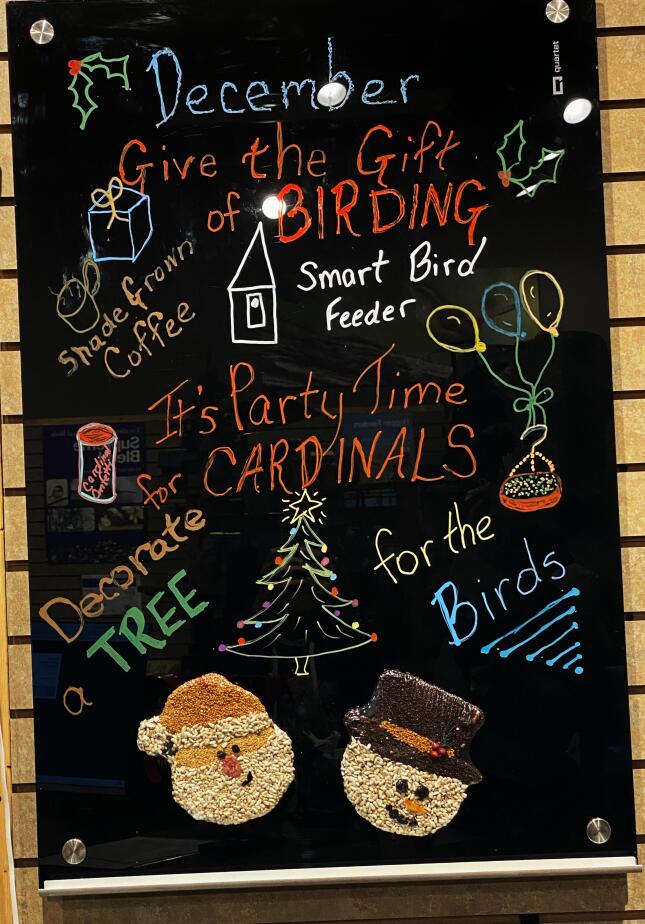 quartet
December
Give the Gift
of BIRDING
Smart Bird
Feeder
Shade Grown
Coffee
It's Party Time
for CARDINALS
Decorate
a TREE
for the
Birds